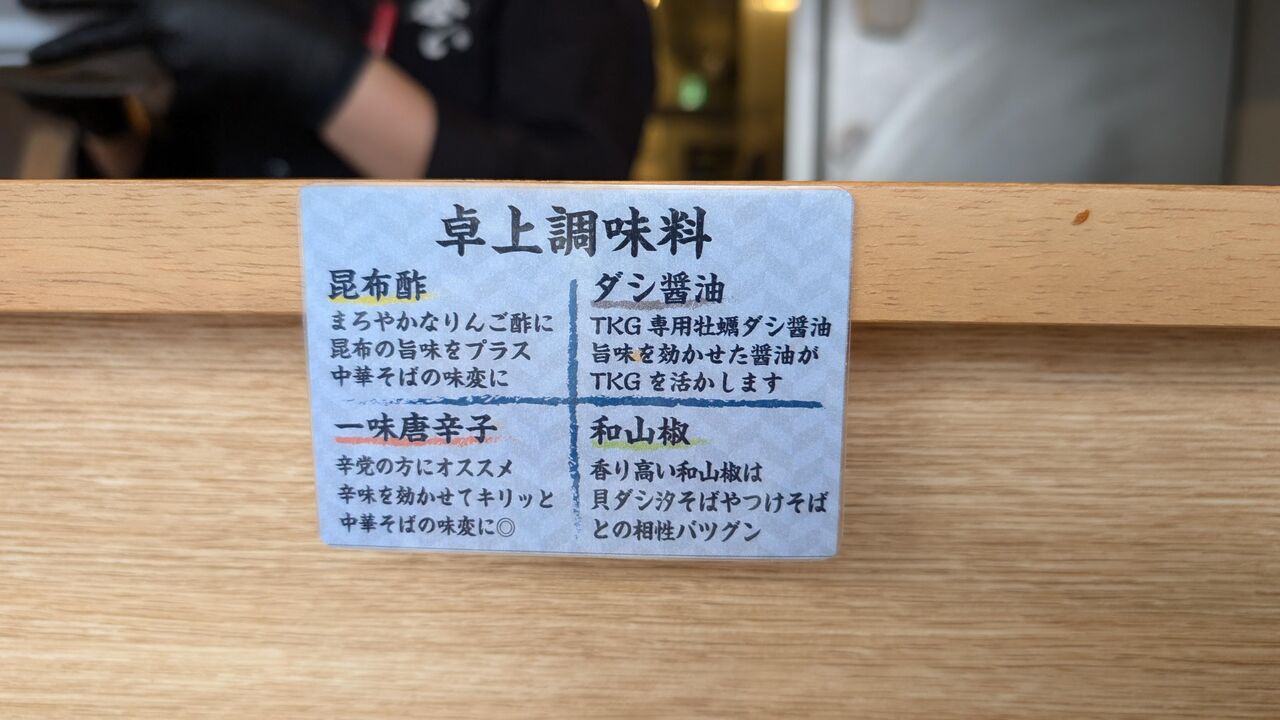 卓上調味料
昆布酢
まろやかなりんご酢に
昆布の旨味をプラス
中華そばの味変に
ダシ醤油
TKG専用牡蠣ダシ醤油
旨味を効かせた醤油が
TKGを活かします
一味唐辛子
辛党の方にオススメ
辛味を効かせてキリッと
中華そばの味変に◎
和山椒
香り高い和山椒は
貝ダシ汐そばやつけそば
との相性バツグン